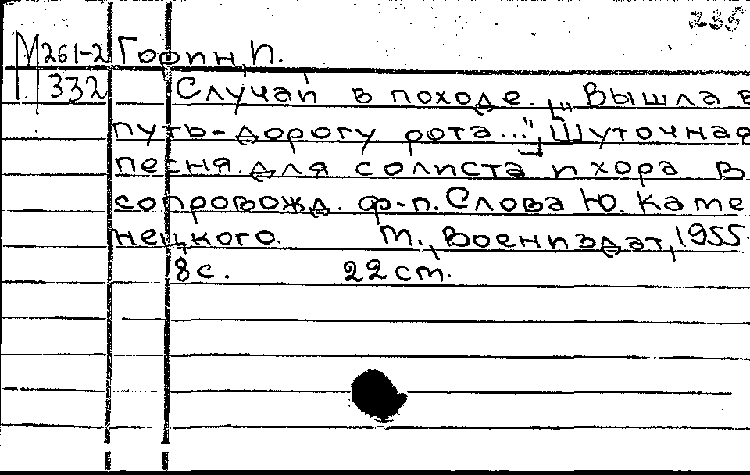 235
М 261-2 Горин, П.
332 Случай в походе. „Вышла в
путь-дорогу рота...", Шуточная
песня для солиста и хора в
сопровожд. ф-п. Слова Ю. Каме
нецкого. М., Воениздат, 1955.
8 с. 22 см.